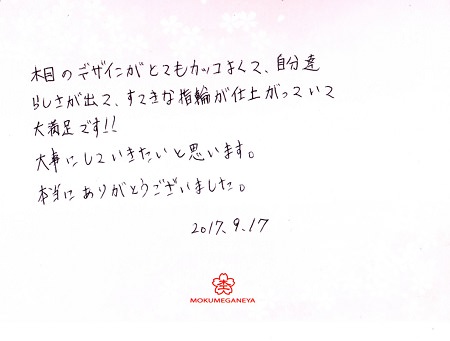 木目のデザインがとてもカッコよくて、自分達
らしさが出て、すてきな指輪が仕上がっていて
大満足です!!
大事にしていきたいと思います。
本当にありがとうございました。
2017.9.17
MOKUMEGANEYA